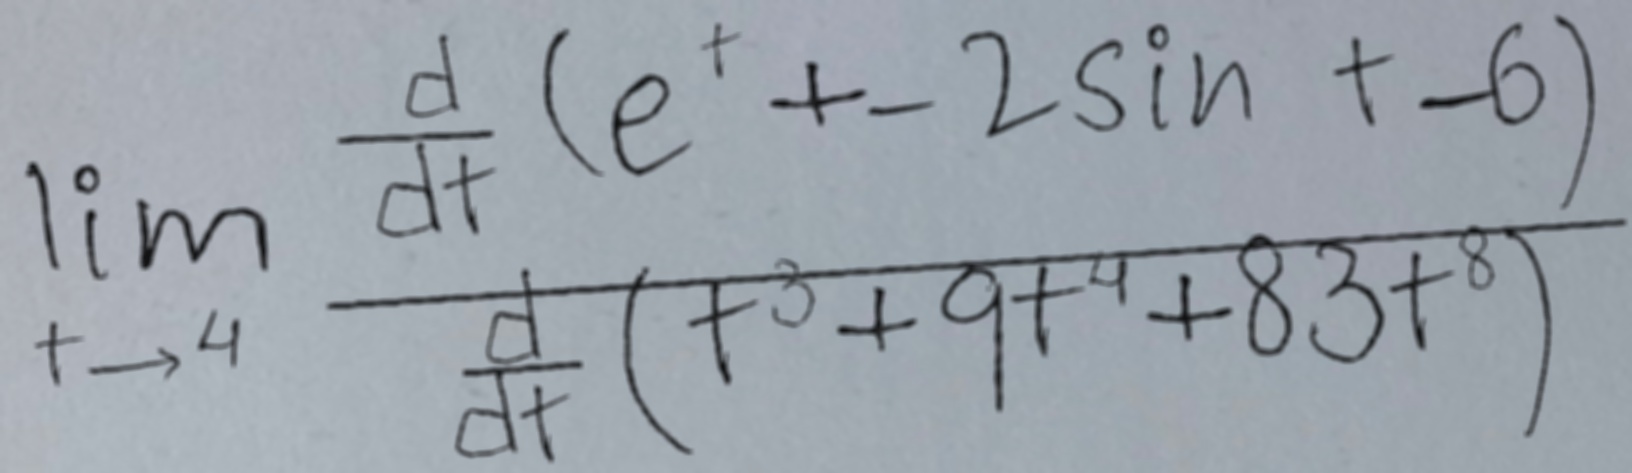 \lim_{t \to 4} \frac{\frac{d}{dt}(e^t + -2 \sin t - 6)}{\frac{d}{dt}(t^3 + 9t^4 + 83t^8)}